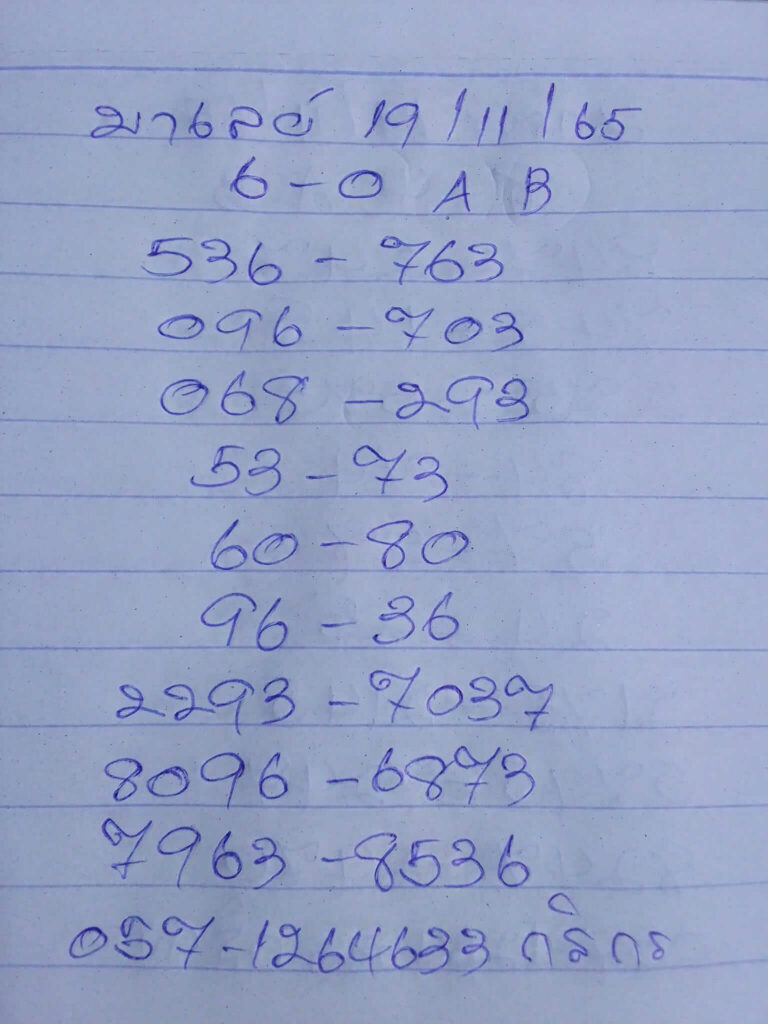 มาเลย์ 19/11/65
6-0 A B
536 - 763
096 - 703
068 - 293
53 - 73
60 - 80
96 - 36
2293 - 7037
8096 - 6873
7963 - 8536
057-1264633 กสิกร